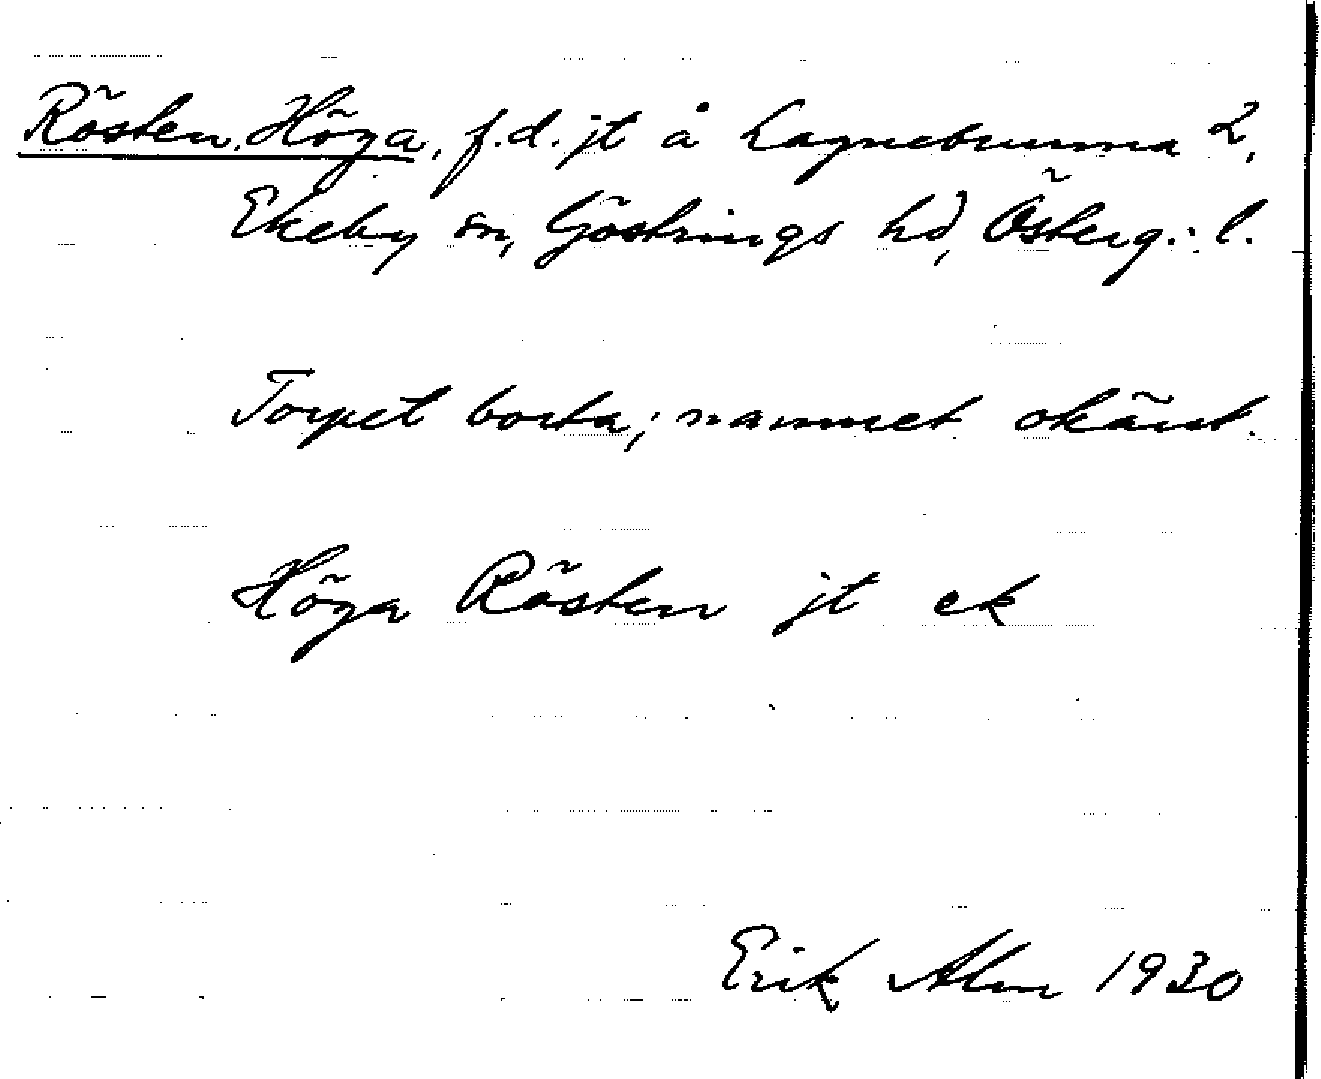 Rösten, Höga, f.d. jt å Lagnebrunna 2,
Ekeby sn, Göstrings hd, Österg:l.
Torpet borta; namnet okänt.
Höga Rösten jt ek
Erik Alm 1930